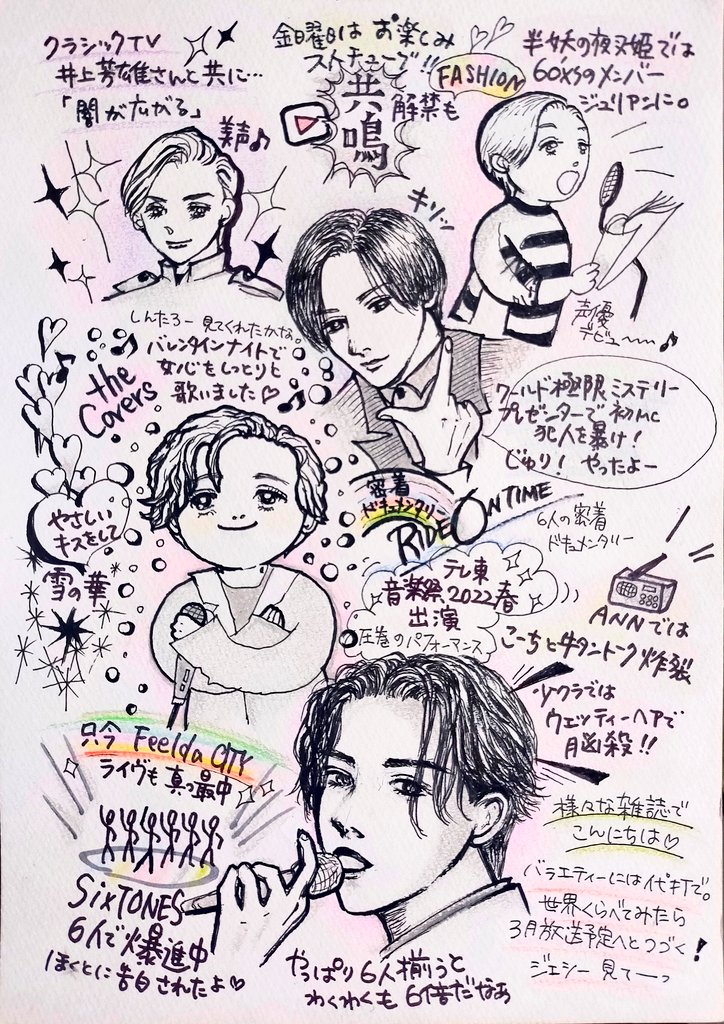 クラシックTV
井上芳雄さんと共に…
「闇が広がる」
美声♪
金曜日は お楽しみ
ストチューブで!!
共鳴
解禁も
FASHION
半妖の夜叉姫では
60×3のメンバー
ジュリアンに。
声優
デビュー〜♪
キリーン
しんたろー見てくれたかな。
バレンタインナイトで
女心をしっとりと
歌いました♡
the
Covers
やさしい
キスをして
雪の華
ワールド極限ミステリー
プレゼンターで初MC
犯人を暴け!
じゅり! やったよー
密着
ドキュメンタリー
RIDE ON TIME
6人の密着
ドキュメンタリー
テレ東
音楽祭2022春
出演
圧巻のパフォーマンス
ANNでは
こーちと牛タントーク炸裂
少クラでは
ウェッティーヘアで
悩殺!!
只今 Feelda CITY
ライヴも真っ最中
SixTONES
6人で爆進中
ほくとに告白されたよ♡
やっぱり6人揃うと
わくわくも6倍だなぁ
様々な雑誌で
こんにちは♡
バラエティーにはイイ打で。
世界くらべてみたら
3月放送予定へとつづく!
ジェシー 見てーっ